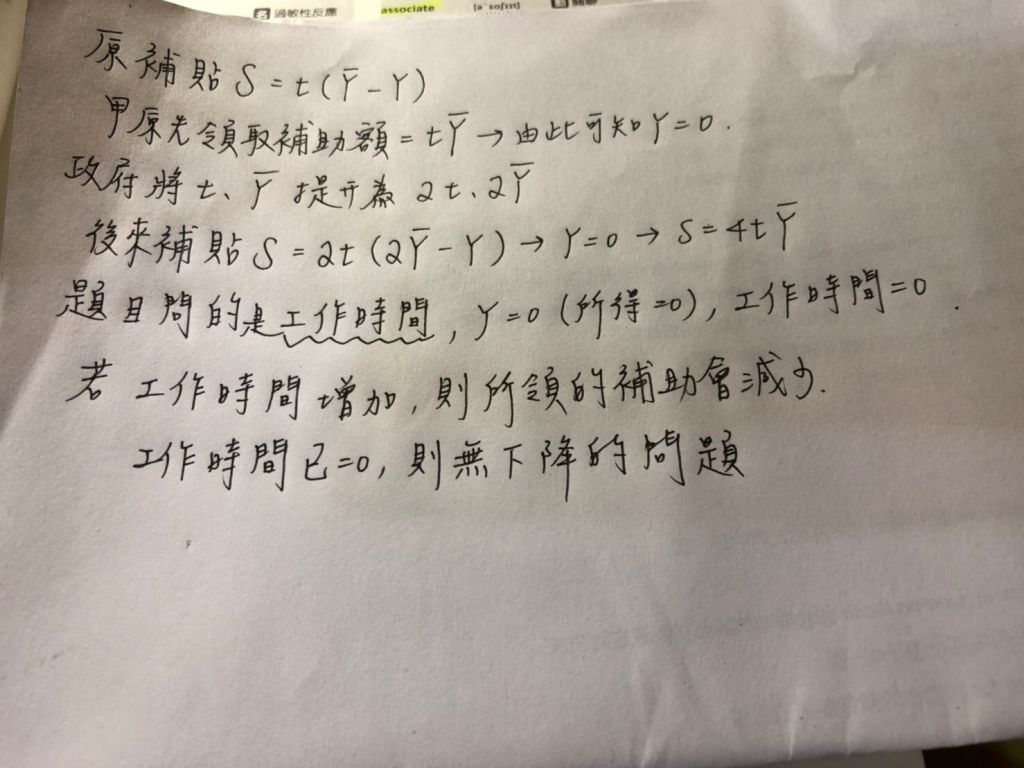 名 過敏性反應 associate
原補貼 S = t(Ȳ - Y)
甲原先領取補助額 = tȲ → 由此可知 Y = 0.
政府將 t、Ȳ 提升為 2t、2Ȳ
後來補貼 S = 2t (2Ȳ - Y) → Y=0 → S = 4tȲ
題目問的是工作時間, Y=0 (所得=0), 工作時間=0.
若工作時間增加, 則所領的補助會減少.
工作時間已=0, 則無下降的問題